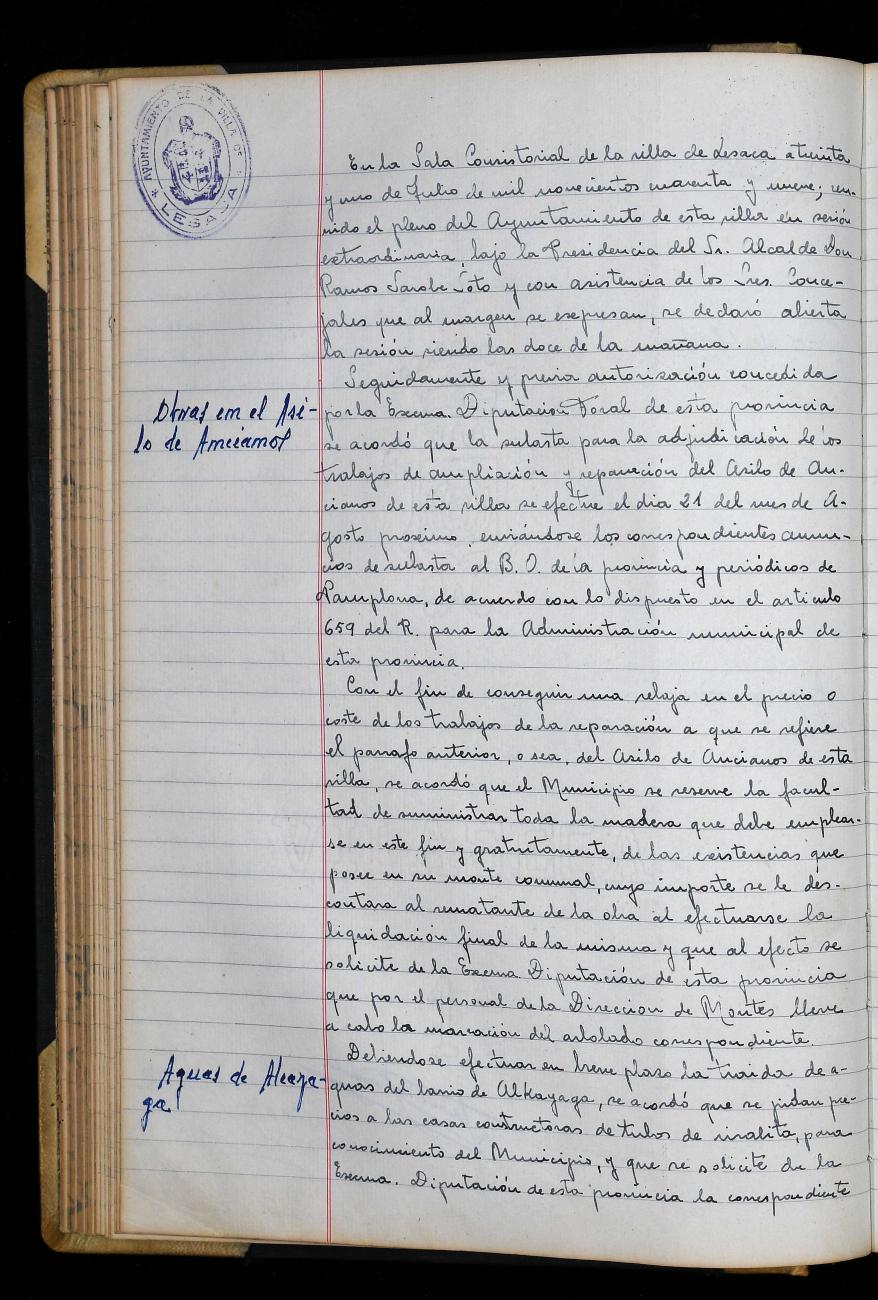 AYUNTAMIENTO DE LA VILLA DE
* LESACA *
En la Sala Consistorial de la villa de Lesaca a treinta
y uno de Julio de mil novecientos cuarenta y nueve; reu-
nido el pleno del Ayuntamiento de esta villa en sesión
extraordinaria bajo la Presidencia del Sr. Alcalde Don
Ramos Sarobe Soto y con asistencia de los Sres. Conce-
jales que al margen se exepresan, se declaró abierta
la sesión siendo las doce de la mañana.
Seguidamente y previa autorización concedida
Obras en el Asi-
lo de Ancianos
por la Excma. Diputación Foral de esta provincia
se acordó que la subasta para la adjudicación de los
trabajos de ampliación y reparación del Asilo de An-
cianos de esta villa se efectue el dia 21 del mes de A-
gosto proximo, enviándose los correspondientes anun-
cios de subasta al B. O. de la provincia y periódicos de
Pamplona, de acuerdo con lo dispuesto en el articulo
659 del R. para la Administración municipal de
esta provincia.
Con el fin de conseguir una rebaja en el precio o
coste de los trabajos de la reparación a que se refiere
el parrafo anterior, o sea, del Asilo de Ancianos de esta
villa, se acordó que el Municipio se reserve la facul-
tad de suministrar toda la madera que debe emplear-
se en este fin y gratuitamente, de las existencias que
posee en su monte comunal, cuyo importe se le des-
contara al rematante de la obra al efectuarse la
liquidación final de la misma y que al efecto se
solicite de la Excma. Diputación de esta provincia
que por el personal de la Direccion de Montes lleve
a cabo la marcación del arbolado correspondiente.
Aguas de Alcaya-
ga
Debiendose efectuar en breve plazo la traida de a-
guas del barrio de Alkayaga, se acordó que se pidan pre-
cios a las casas constructoras de tubos de uralita, para
conocimiento del Municipio, y que se solicite de la
Excma. Diputación de esta provincia la correspondiente